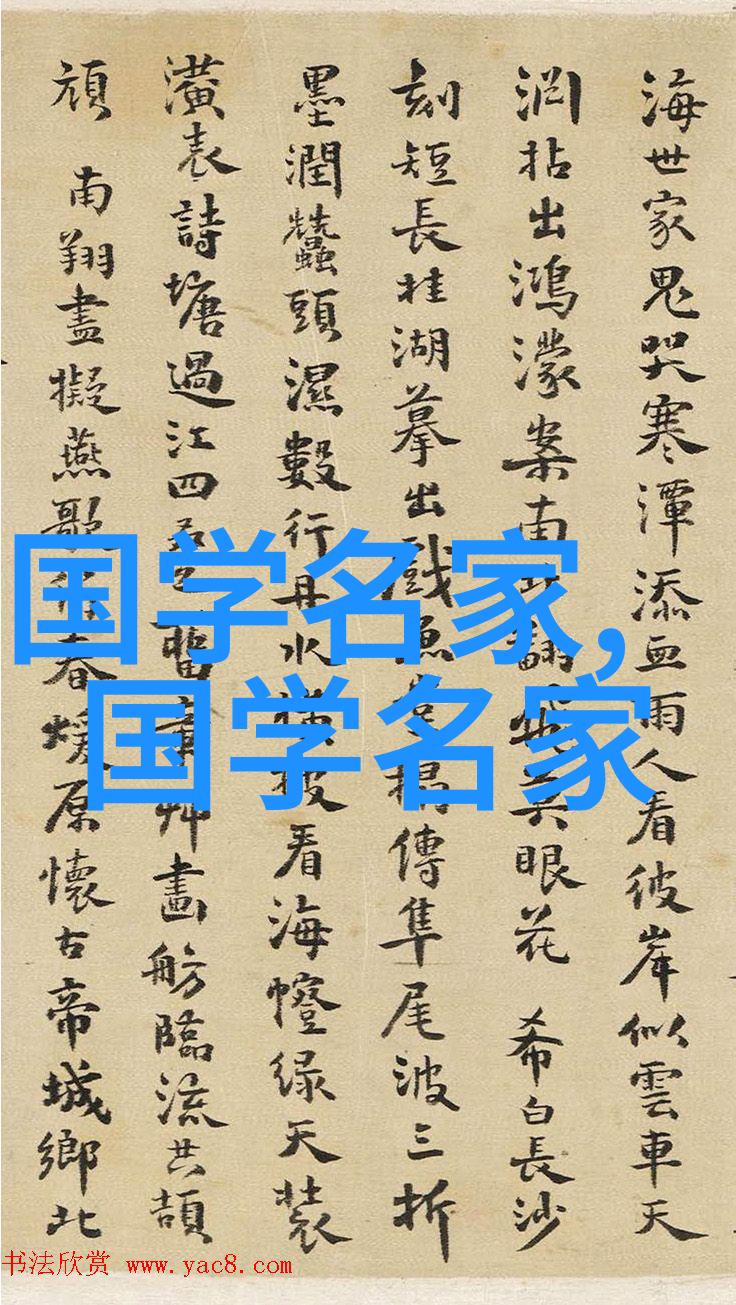 海世家鬼哭寒潭添血雨人看彼岸似雲車天
淵拈出鴻濛案南眼花 希白長沙
刻短長桂湖摹出戲魚堂搨傳隼尾波三折
墨潤蠶頭濕數行丹水橫披看海幢綠天裝
潢表詩塘過江四畫舫臨流共頡
頏 南翔盡擬燕歌行春煖原懷古帝城鄉北
国学名家,
国学名家
书法欣赏 www.yac8.com